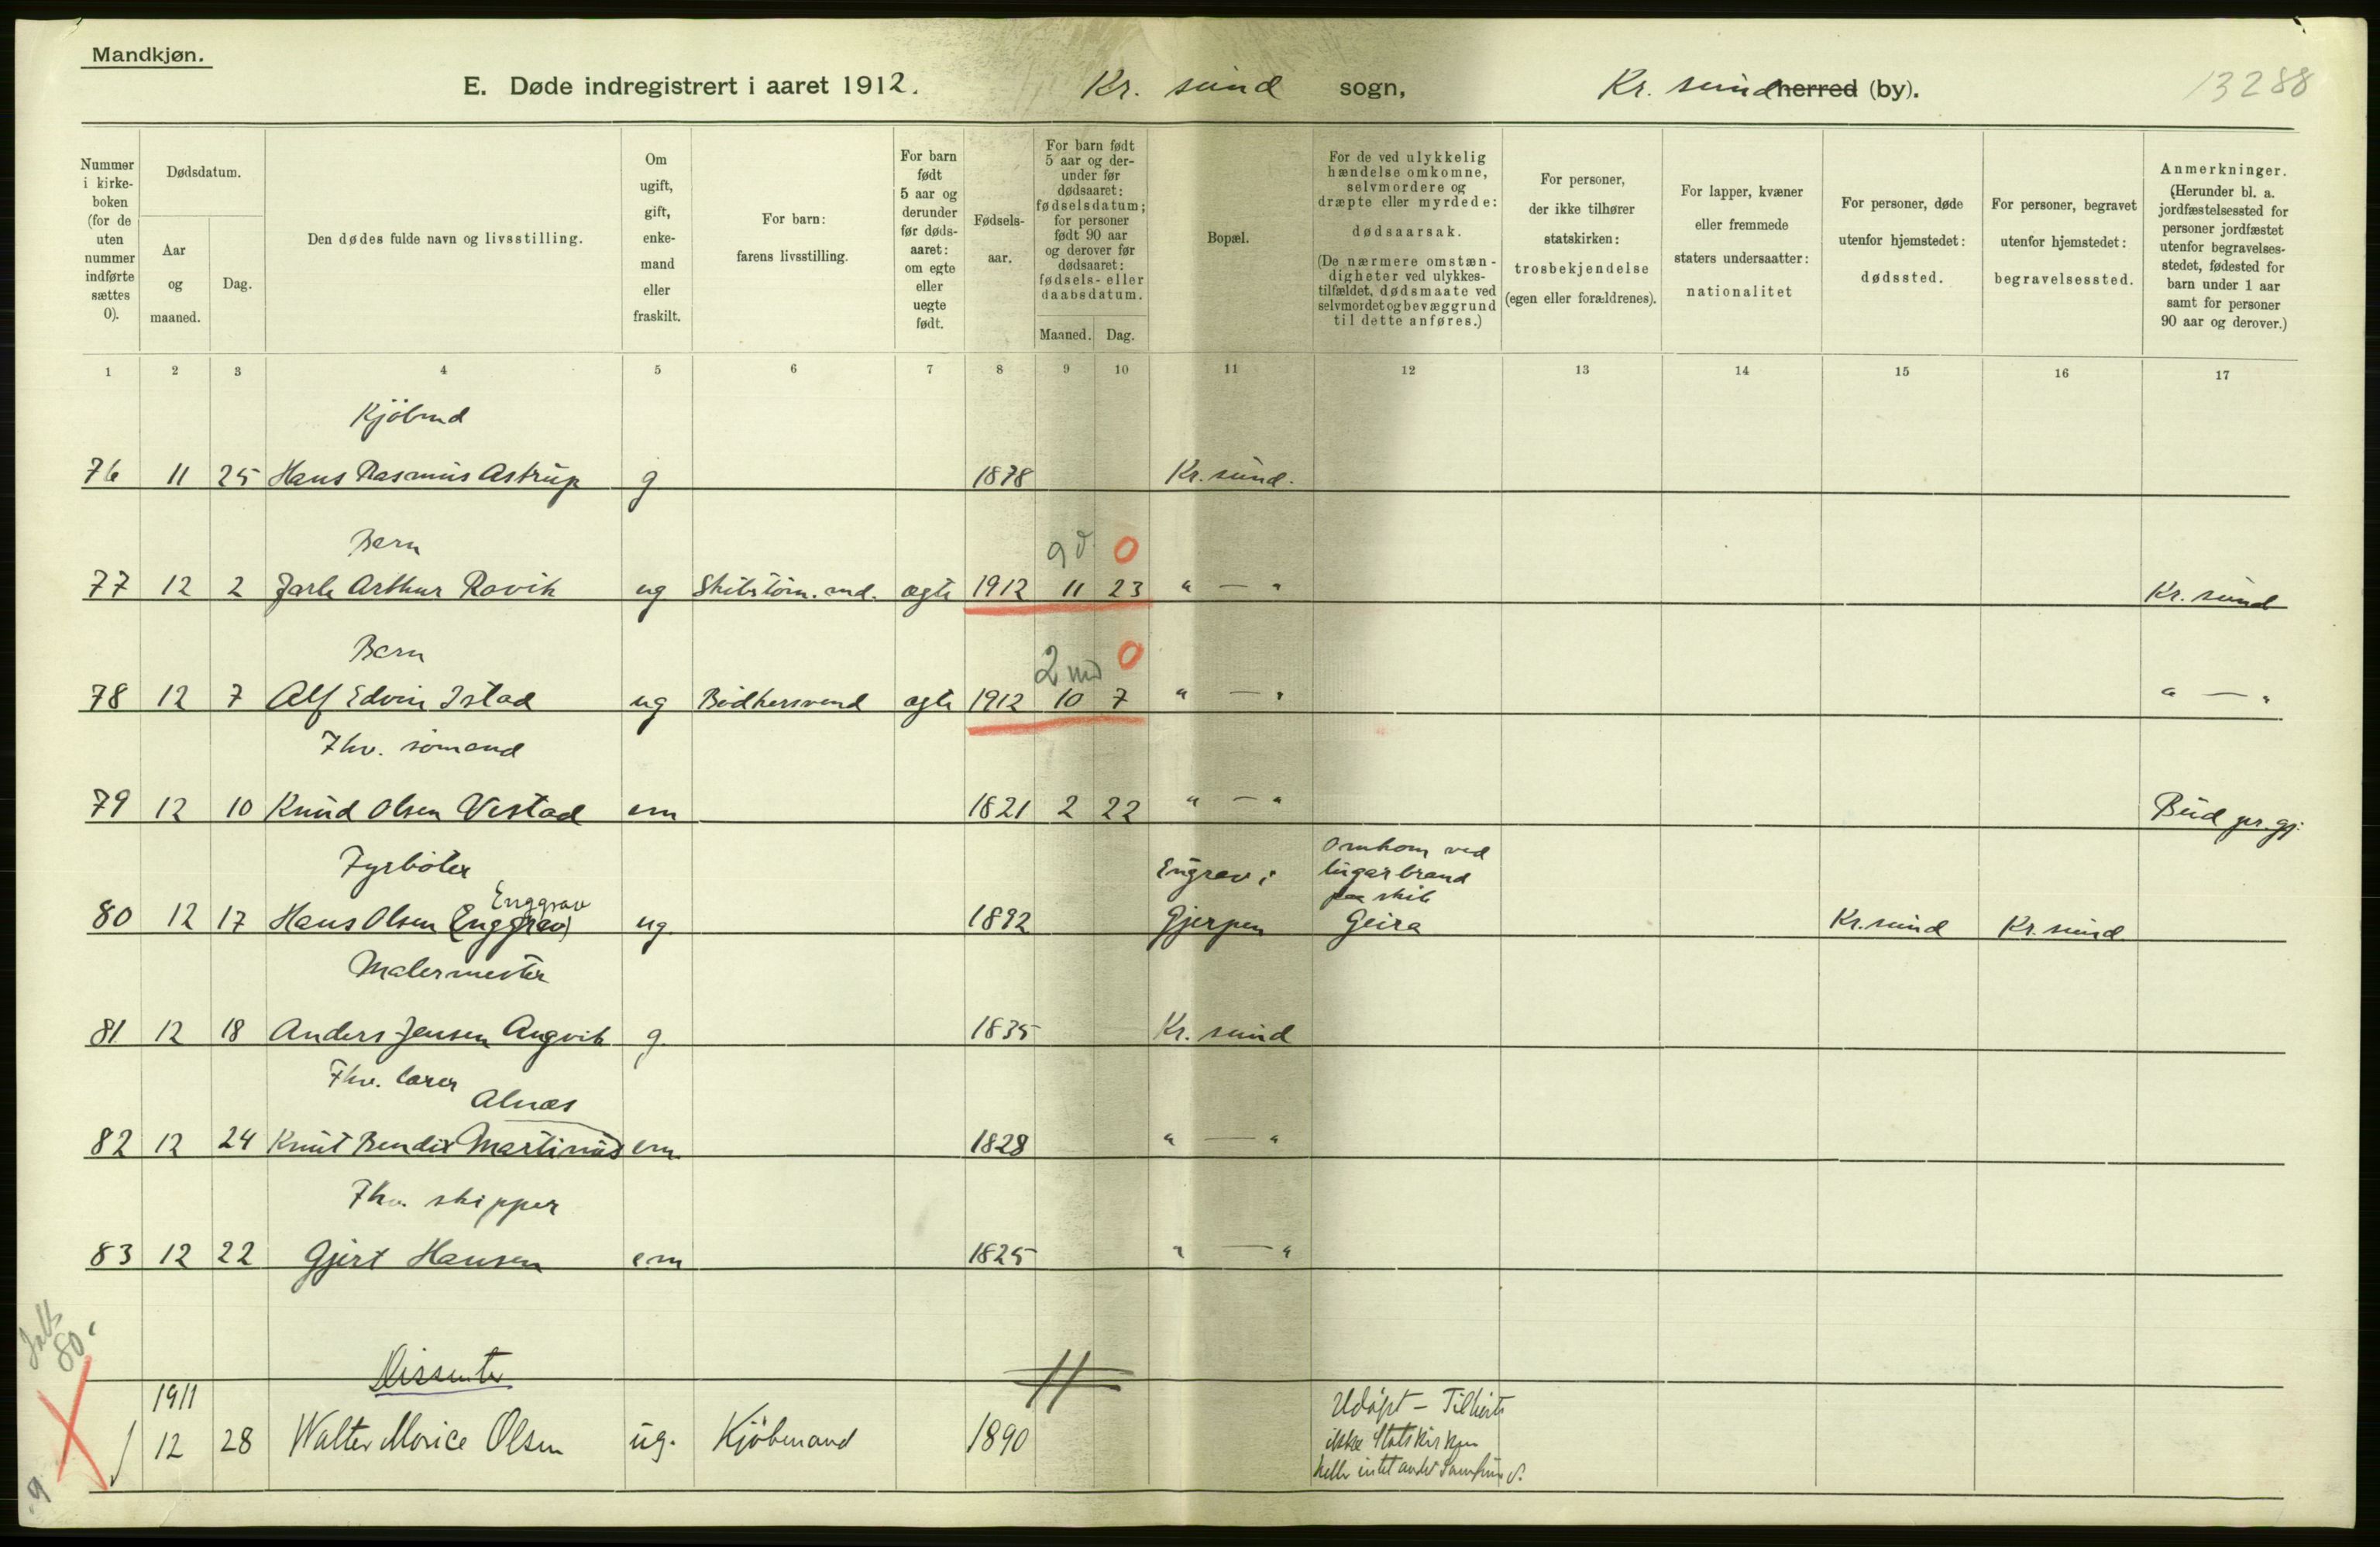 Mandkjøn.
E. Døde indregistrert i aaret 1912. Kr. sund sogn, Kr. sund herred (by). 13288
Nummer i kirkeboken (for de uten nummer indførte sættes 0).
Dødsdatum.
Aar og maaned.
Dag.
Den dødes fulde navn og livsstilling.
Om ugift, gift, enkemand eller fraskilt.
For barn: farens livsstilling.
For barn født 5 aar og derunder før dødsaaret: om egte eller uegte født.
Fødselsaar.
For barn født 5 aar og derunder før dødsaaret: fødselsdatum; for personer født 90 aar og derover før dødsaaret: fødsels- eller daabsdatum.
Maaned. Dag.
Bopæl.
For de ved ulykkelig hændelse omkomne, selvmordere og dræpte eller myrdede: dødsaarsak.
(De nærmere omstændigheter ved ulykkestilfældet, dødsmaate ved selvmordet og bevæggrund til dette anføres.)
For personer, der ikke tilhører statskirken: trosbekjendelse (egen eller forældrenes).
For lapper, kvæner eller fremmede staters undersaatter: nationalitet
For personer, døde utenfor hjemstedet: dødssted.
For personer, begravet utenfor hjemstedet: begravelsessted.
Anmerkninger.
(Herunder bl. a. jordfæstelsessted for personer jordfæstet utenfor begravelsesstedet, fødested for barn under 1 aar samt for personer 90 aar og derover.)
1 2 3 4 5 6 7 8 9 10 11 12 13 14 15 16 17
Kjöbmd
76 11 25 Hans Rasmus Astrup g 1878 Kr. sund.
Barn 9 d 0
77 12 2 Jarle Arthur Rovik ug Skibstöm. md. ægte 1912 11 23 " — " Kr. sund
Barn 2 md 0
78 12 7 Alf Edvin Istad ug Bödkersvend ægte 1912 10 7 " — " " — "
Fhv. sömand
79 12 10 Knud Olsen Vestad em 1821 2 22 " — " Bud pr. gj.
Fyrböter Engrav i Omkom ved
Enggrav lugarbrand
paa skib
80 12 17 Hans Olsen (Enggrav) ug 1892 Gjerpen Geira Kr. sund Kr. sund
Malermester
81 12 18 Anders Jensen Angvik g 1835 Kr. sund
Fhv. lærer
Alnæs
82 12 24 Knut Bendix Martinus em 1828 " — "
Fhv. skipper
83 12 22 Gjert Hansen em 1825 " — "
80.
Dissenter
1911 Udöpt – Tilhörte
12 28 Walter Morice Olsen ug. Kjöbmand 1890 ikke Statskirken
heller intet andet Samfund.
9